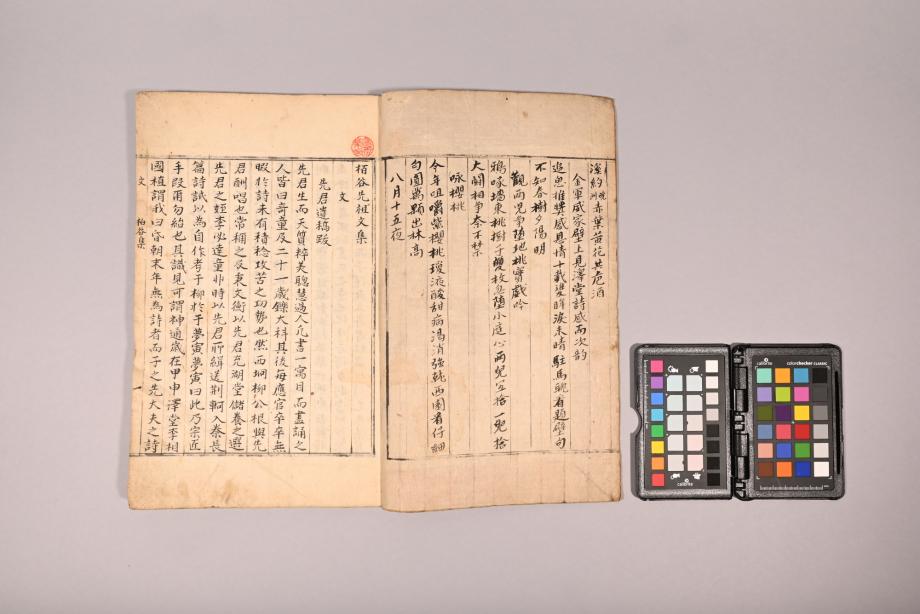 赤葉黃花共危酒
金軍威家壁上見澤堂詩感而次韵
追思推奬感恩情十載雙眸淚未晴駐馬 看題壁句
不知春樹夕陽明
觀兩兒爭墮地桃實戲吟
鴉啄場東桃樹子雙枚忽墮小庭心兩兒 拾一兒拾
大鬧相爭奈不禁
咏櫻桃
今年咀嚼紫櫻桃瓊液酸甜病渴消強 西園看仔細
勻圓萬顆出林高
八月十五夜
栢谷先祖文集
文
先君遺稿跋
先君生而天質粹美聰慧過人凢書一寓目而盡誦之
人皆曰奇童及二十一歲鑠大科其後每應官卒卒無
暇於詩未有積稔攻苦之功勢也然而 柳公根與先
君酬唱也常稱之及東文衡以先君充湖堂儲養之選
先君之姪李必達童丱時以先君所緝送荊軻入秦長
篇詩試以爲自作考于柳於于夢寅夢寅曰此乃宗匠
手段甭勿紿也其識見可謂神通歲在甲申澤堂李相
國植謂我曰昏朝末年無爲詩者而子之先大夫之詩
文
栢谷集
一
calibrite
calibrite
colorchecker CLASSIC